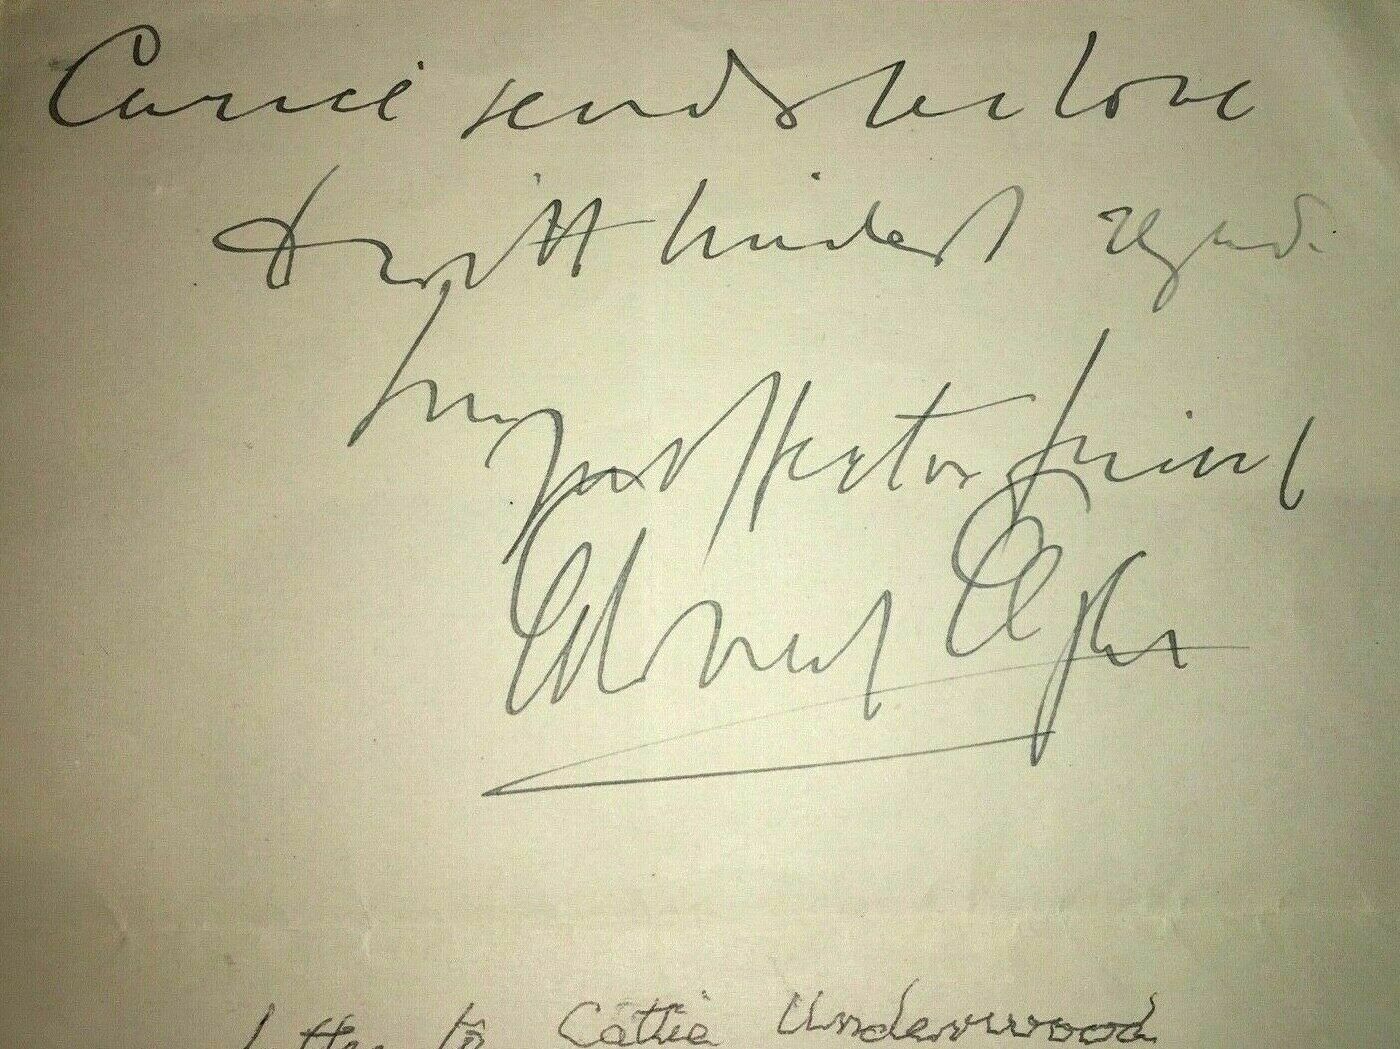 Carice sends her love
& with kindest regards
from
Your affectte friend
Edward Elgar
letter to Cattie Underwood